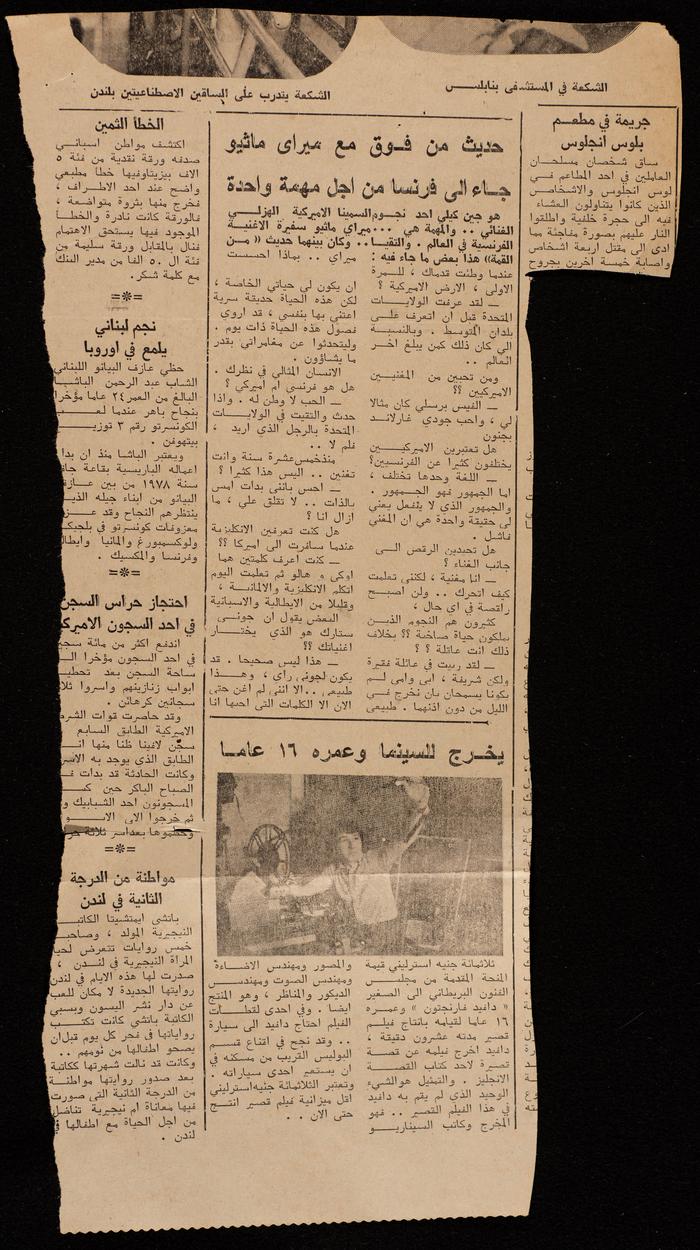 الشكعة في المستشفى بنابلس
الشكعة يتدرب على الساقين الاصطناعيتين بلندن
جريمة في مطعم
بلوس انجلوس
ساق شخصان مسلحان
العاملين في احد المطاعم في
لوس انجلوس والاشخاص
الذين كانوا يتناولون العشاء
فيه الى حجرة خلفية واطلقوا
النار عليهم بصورة مفاجئة مما
ادى الى مقتل اربعة اشخاص
واصابة خمسة اخرين بجروح
حديث من فوق مع ميراي ماثيو
جاء الى فرنسا من اجل مهمة واحدة
هو جين كيلي احد نجوم السينما الاميركية الهزلي
الغنائي .. والمهمة هي ... ميراي ماثيو سفيرة الاغنية
الفرنسية في العالم . والتقيا .. وكان بينهما حديث « من
القمة» هذا بعض ما جاء فيه :
عندما وطئت قدماك ، للمرة
الاولى ، الارض الاميركية ؟
ــ لقد عرفت الولايات
المتحدة قبل ان اتعرف على
بلدان المتوسط . وبالنسبة
الي كان ذلك كمن يبلغ اخر
العالم ..
ومن تحبين من المغنيين
الاميركيين ؟؟
ــ الفيس برسلي كان مثالا
لي ، واحب جودي غارلاند
بجنون
هل تعتبرين الاميركيين
يختلفون كثيرا عن الفرنسيين؟
ــ اللغة وحدها تختلف ،
اما الجمهور فهو الجمهور .
والجمهور الذي لا ينفعل يعني
لي حقيقة واحدة هي ان المغني
فاشل .
هل تجيدين الرقص الى
جانب الغناء ؟
ــ انا مغنية ، لكنني تعلمت
كيف اتحرك .. ولن اصبح
راقصة في اي حال ،
كثيرون هم النجوم الذين
يملكون حياة صاخبة ؟؟ بخلاف
ذلك انت عائلة ؟ ؟
ــ لقد ربيت في عائلة فقيرة
ولكن شريفة ، ابي وامي لم
يكونا يسمحان بان نخرج في
الليل من دون اذنهما . طبيعي
ميراي .. بماذا احسست
ان يكون لي حياتي الخاصة ،
لكن هذه الحياة حديقة سرية
اعتني بها بنفسي ، قد اروي
فصول هذه الحياة ذات يوم .
وليتحدثوا عن مغامراتي بقدر
ما يشاؤون .
الانسان المثالي في نظرك .
هل هو فرنسي ام اميركي ؟
ــ الحب لا وطن له . واذا
حدث والتقيت في الولايات
المتحدة بالرجل الذي اريد ،
فلم لا ..
منذخمس عشرة سنة وانت
تغنين .. اليس هذا كثيرا ؟
ــ احس بانني بدات امس
بالذات .. لا تقلق علي ، ما
ازال انا ؟
هل كنت تعرفين الانكليزية
عندما سافرت الى اميركا ؟؟
ــ كنت اعرف كلمتين هما
اوكي و هالو ثم تعلمت اليوم
اتكلم الانكليزية والالمانية ،
وقليلا من الايطالية والاسبانية
البعض يقول ان جوني
ستارك هو الذي يختار
اغنياتك ؟؟
ــ هذا ليس صحيحا . قد
يكون لجوني راي ، وهذا
طبيعي .. الا انني لم اغن حتى
الان الا الكلمات التي احبها انا
يخرج للسينما وعمره ١٦ عاما
ثلاثمائة جنيه استرليني قيمة
المنحة المقدمة من مجلس
الفنون البريطاني الى الصغير
« دافيد فارنجتون » وعمره
١٦ عاما لقيامه بانتاج فيلم
قصير مدته عشرون دقيقة ،
دافيد اخرج فيلمه عن قصة
قصيرة لاحد كتاب القصة
الانجليز . والتمثيل هو الشيء
الوحيد الذي لم يقم به دافيد
في هذا الفيلم القصير .. فهو
المخرج وكاتب السيناريو
والمصور ومهندس الاضاءة
ومهندس الصوت ومهندس
الديكور والمناظر ، وهو المنتج
ايضا . وفي احدى لقطات
الفيلم احتاج دافيد الى سيارة
.. وقد نجح في اقناع قسم
البوليس القريب من مسكنه في
ان يستعير احدى سياراته .
وتعتبر الثلاثمائة جنيه استرليني
اقل ميزانية فيلم قصير انتج
حتى الان . .
الخطأ الثمين
اكتشف مواطن اسباني
صدفه ورقة نقدية من فئة ٥
الاف بيزيتاوفيها خطا مطبعي
واضح عند احد الاطراف ،
فخرج منها بثروة متواضعة ،
فالورقة كانت نادرة والخطأ
الموجود فيها يستحق الاهتمام
فنال بالمقابل ورقة سليمة من
فئة ال ٥٠ الفا من مدير البنك
مع كلمة شكر.
=※=
نجم لبناني
يلمع في اوروبا
حظي عازف البيانو اللبناني
الشاب عبد الرحمن الباشا
البالغ من العمر ٢٤ عاما مؤخرا
بنجاح باهر عندما لعب
الكونسرتو رقم ٣ توزيع
بيتهوفن .
ويعتبر الباشا منذ ان بدا
اعماله الباريسية بقاعة
سنة ١٩٧٨ من بين
البيانو من ابناء جيله الذين
ينتظرهم النجاح وقد
معزوفات كونسرتو في
ولوكسمبورغ والمانيا
وفرنسا والمكسيك .
=※=
احتجاز حراس السجن
في احد السجون
اندفع اكثر من مائة
في احد السجون مؤخرا
ساحة السجن بعد
ابواب زنازينهم واسروا
سجانين كرهائن .
وقد حاصرت قوات
الاميركية الطابق السابع
الطابق الذي يوجد به
وكانت الحادثة قد بدات
الصباح الباكر حين
المسجونون احد الشبابيك
ثم خرجوا الى
=※=
مواطنة من الدرجة
الثانية في لندن
باتشي ايمتشيتا الكاتبة
النيجيرية المولد ،
خمس روايات تتعرض
المراة النيجيرية في لندن ،
صدرت لها هذه الايام في لندن
روايتها الجديدة لا مكان للعب
عن دار نشر اليسون وبسبي
الكاتبة باتشي كانت تكتب
رواياتها في فجر كل يوم قبل ان
يصحو اطفالها من نومهم ..
وكانت قد نالت شهرتها ككاتبة
بعد صدور روايتها مواطنة
من الدرجة الثانية التي صورت
فيها معاناة ام نيجيرية تناضل
من اجل الحياة مع اطفالها في
لندن .